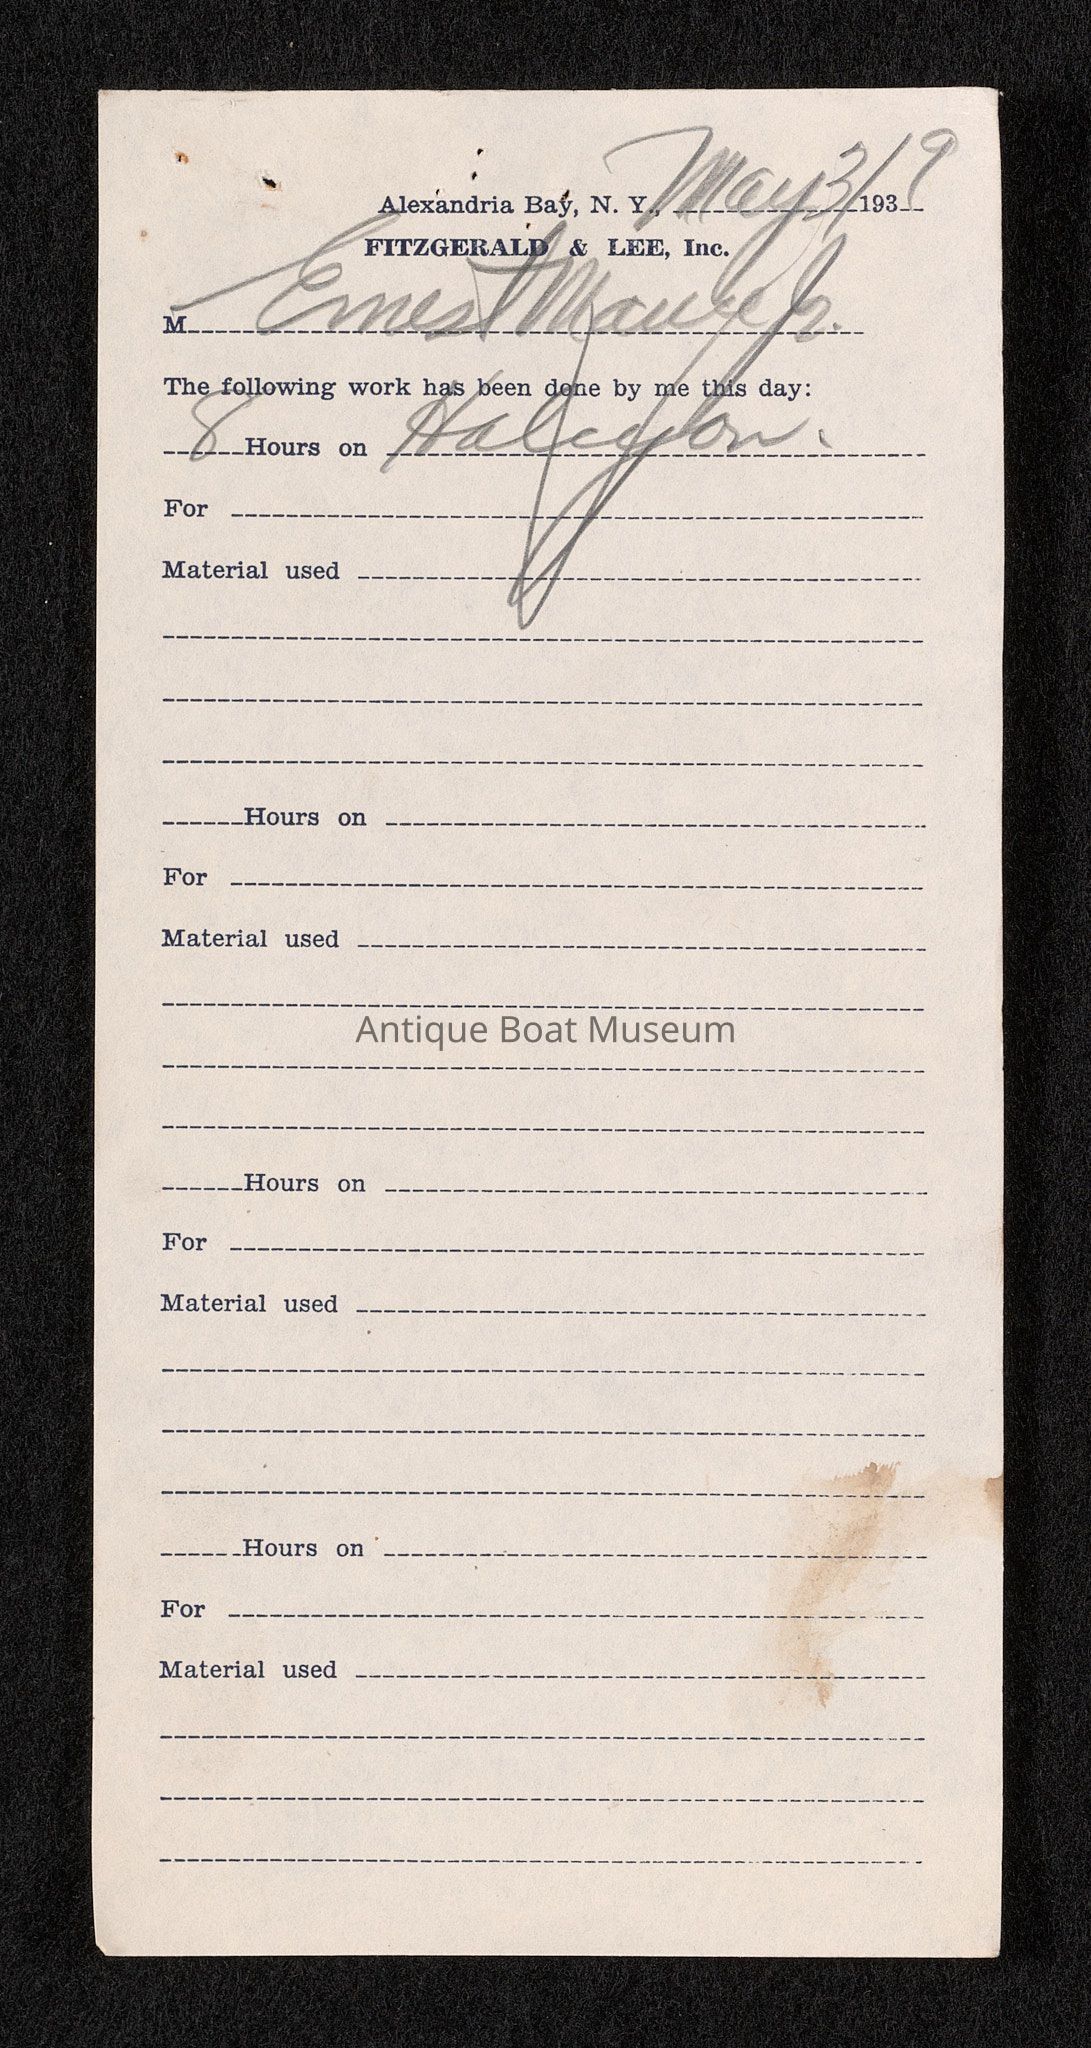 Alexandria Bay, N. Y., May 3/ 1939
FITZGERALD & LEE, Inc.
M Ernest
The following work has been done by me this day:
8 Hours on Halcyon.
For
Material used
Hours on
For
Material used
Antique Boat Museum
Hours on
For
Material used
Hours on
For
Material used